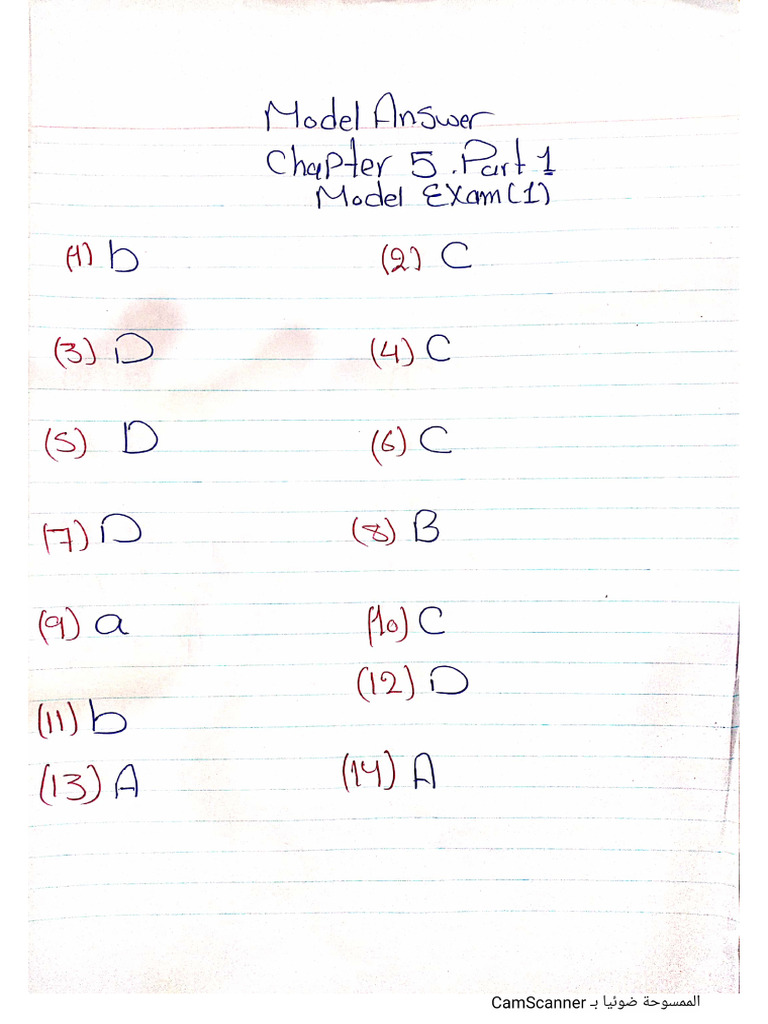 Model Answer
Chapter 5. Part 1
Model Exam (1)
(1) b (2) C
(3) D (4) C
(5) D (6) C
(7) D (8) B
(9) a (10) C
(12) D
(11) b
(13) A (14) A
الممسوحة ضوئيا بـ CamScanner